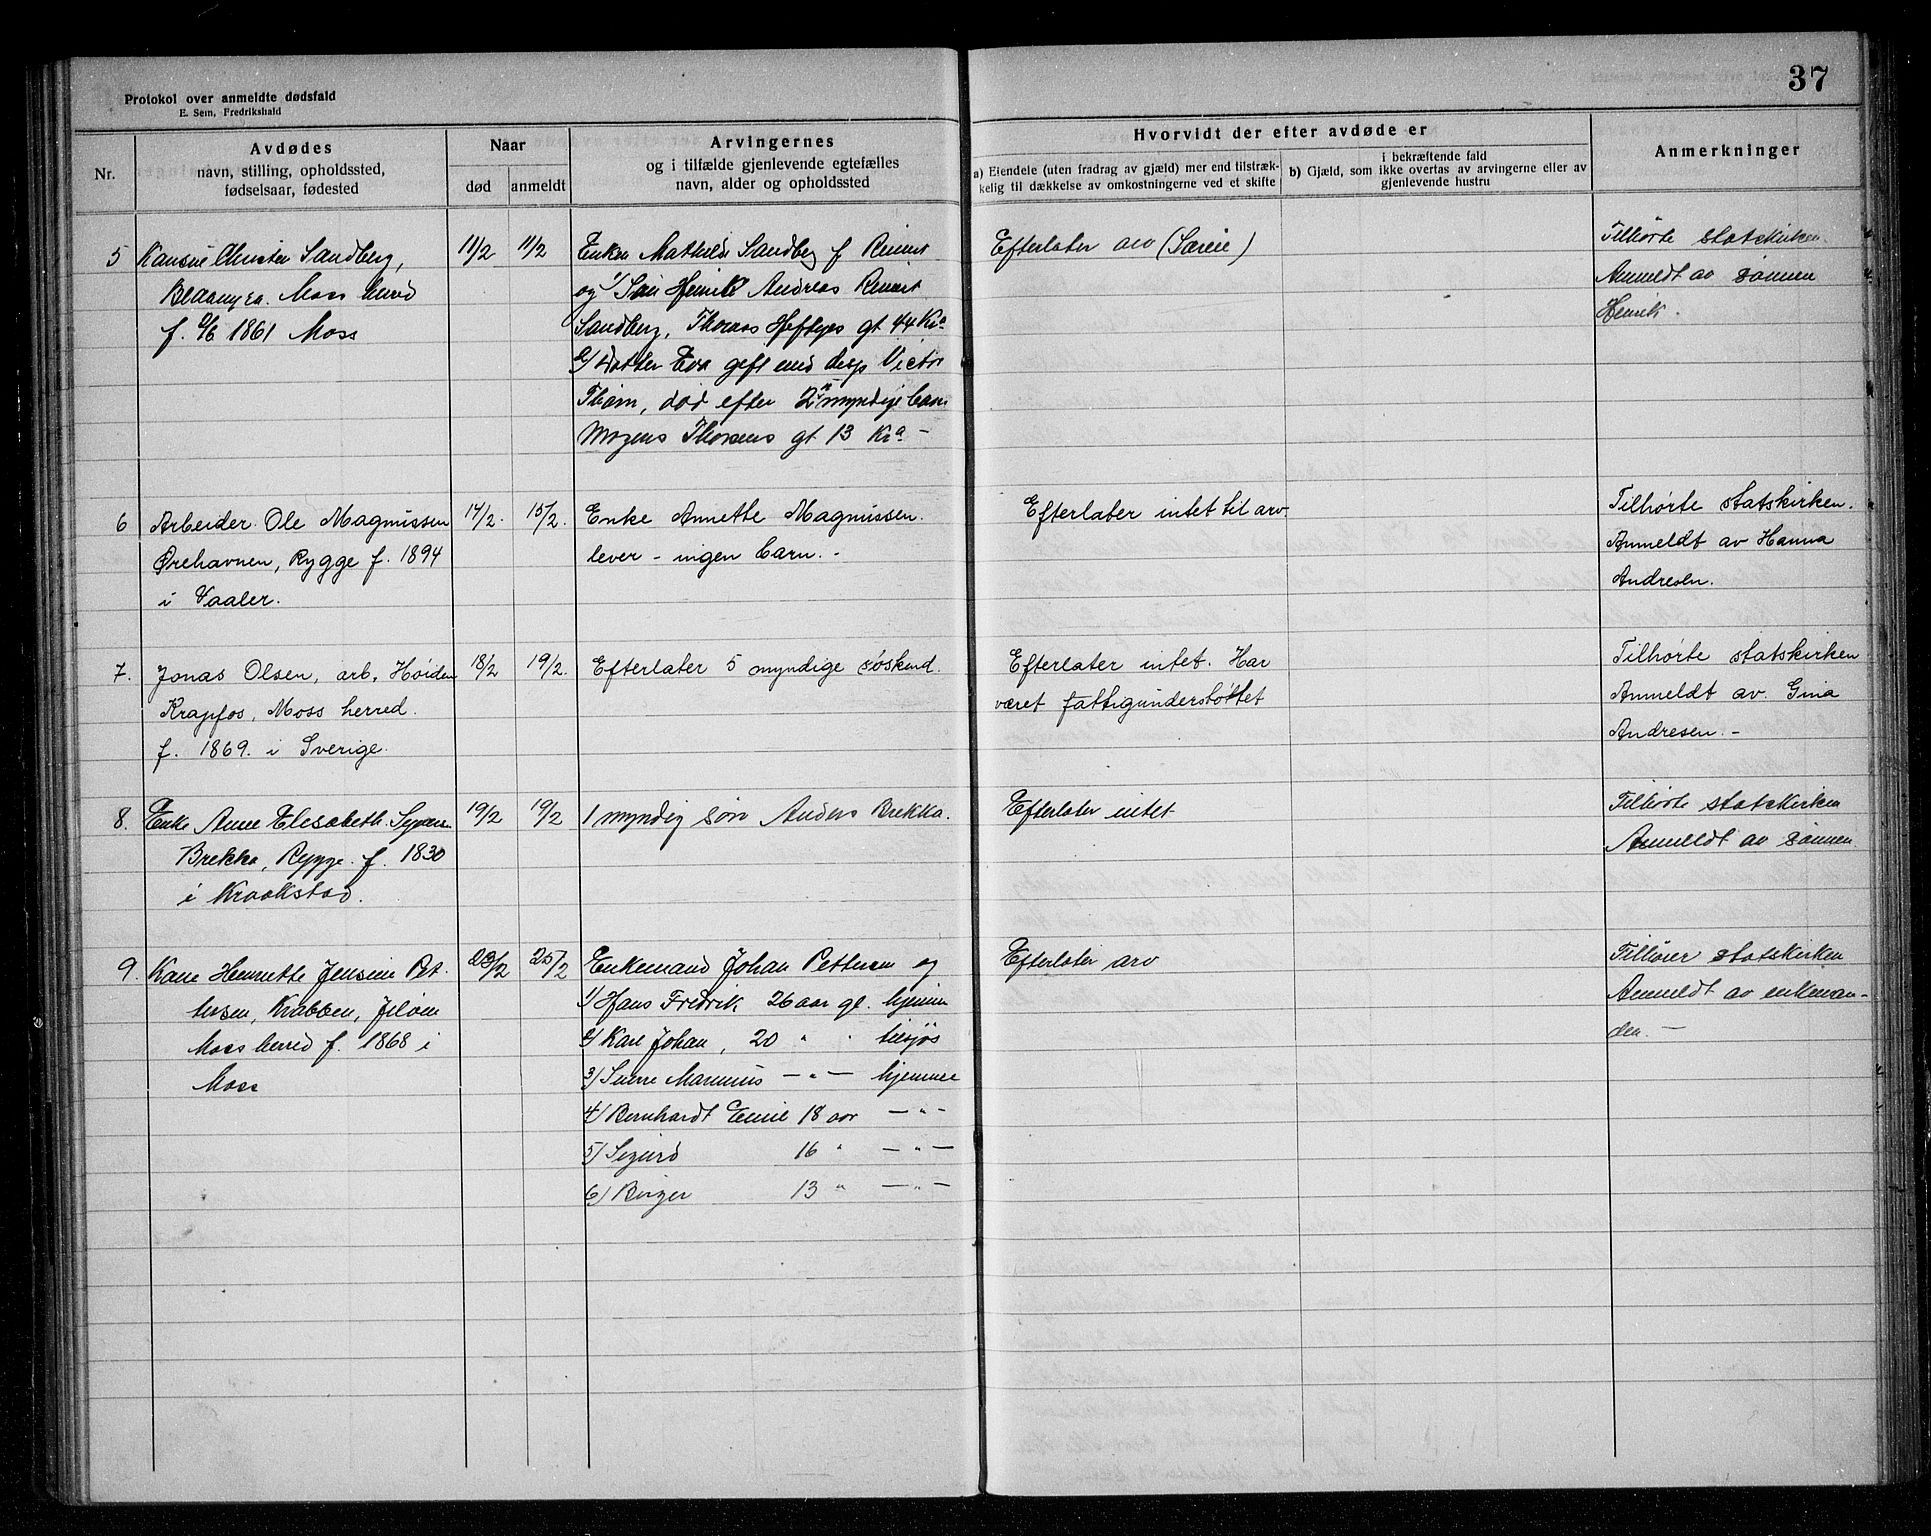 37
Protokol over anmeldte dødsfald
E. Sem, Fredrikshald
Nr.
Avdødes
navn, stilling, opholdssted,
fødselsaar, fødested
Naar
død
anmeldt
Arvingernes
og i tilfælde gjenlevende egtefælles
navn, alder og opholdssted
Hvorvidt der efter avdøde er
a) Eiendele (uten fradrag av gjæld) mer end tilstræk-
kelig til dækkelse av omkostningerne ved et skifte
i bekræftende fald
b) Gjæld, som ikke overtas av arvingerne eller av
gjenlevende hustru
Anmerkninger
5 Christen Sandberg,
Moss herred
f. 6/6 1861 Moss
11/2 11/2
Enken Mathilde Sandberg f Reinert
og 1/ Søn Henrik Andreas Reinert
Sandberg, Thomas Heftyes gt 44 Kra
2/ Datter Eva gift med disp Victor
Thorn, død efter 2 myndige barn
Mogens Thorsens gt 13 Kra –
Efterlater arv (Særeie)
Tilhørte statskirken.
Anmeldt av sønnen
Henrik.
6 Arbeider Ole Magnussen
Ørehavnen, Rygge f. 1894
i Vaaler.
14/2. 15/2.
Enke Annette Magnussen.
lever – ingen barn. –
Efterlater intet til arv.
Tilhørte statskirken.
Anmeldt av Hanna
Andresen.
7. Jonas Olsen, arb, Høiden
Krapfos, Moss herred.
f. 1869. i Sverige.
18/2 19/2.
Efterlater 5 myndige søskend.
Efterlater intet. Har
været fattigunderstøttet
Tilhørte statskirken
Anmeldt av Gina
Andresen. –
8. Enke Anne Elisabeth
Brekka, Rygge. f. 1830
i Kraakstad.
19/2 19/2
1 myndig søn Anders Brekka.
Efterlater intet
Tilhørte statskirken
Anmeldt av sønnen
9. Kone Henriette Jensine Pet-
tersen, Krabben, Jeløen
Moss herred f. 1868 i
Moss
23/2 25/2
Enkemand Johan Pettersen og
1) Hans Fredrik 26 aar gl. hjemme
2/ Karl Johan, 20 " " tilsjøs
3) Sverre Marinius – " – hjemme
4) Bernhardt Emil 18 aar – " –
5) Sigurd 16 " – " –
6) Birger 13 " – " –
Efterlater arv
Tilhører statskirken
Anmeldt av enkeman-
den. –